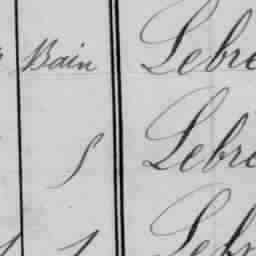 Bain Lebre
Lebre
Lebr